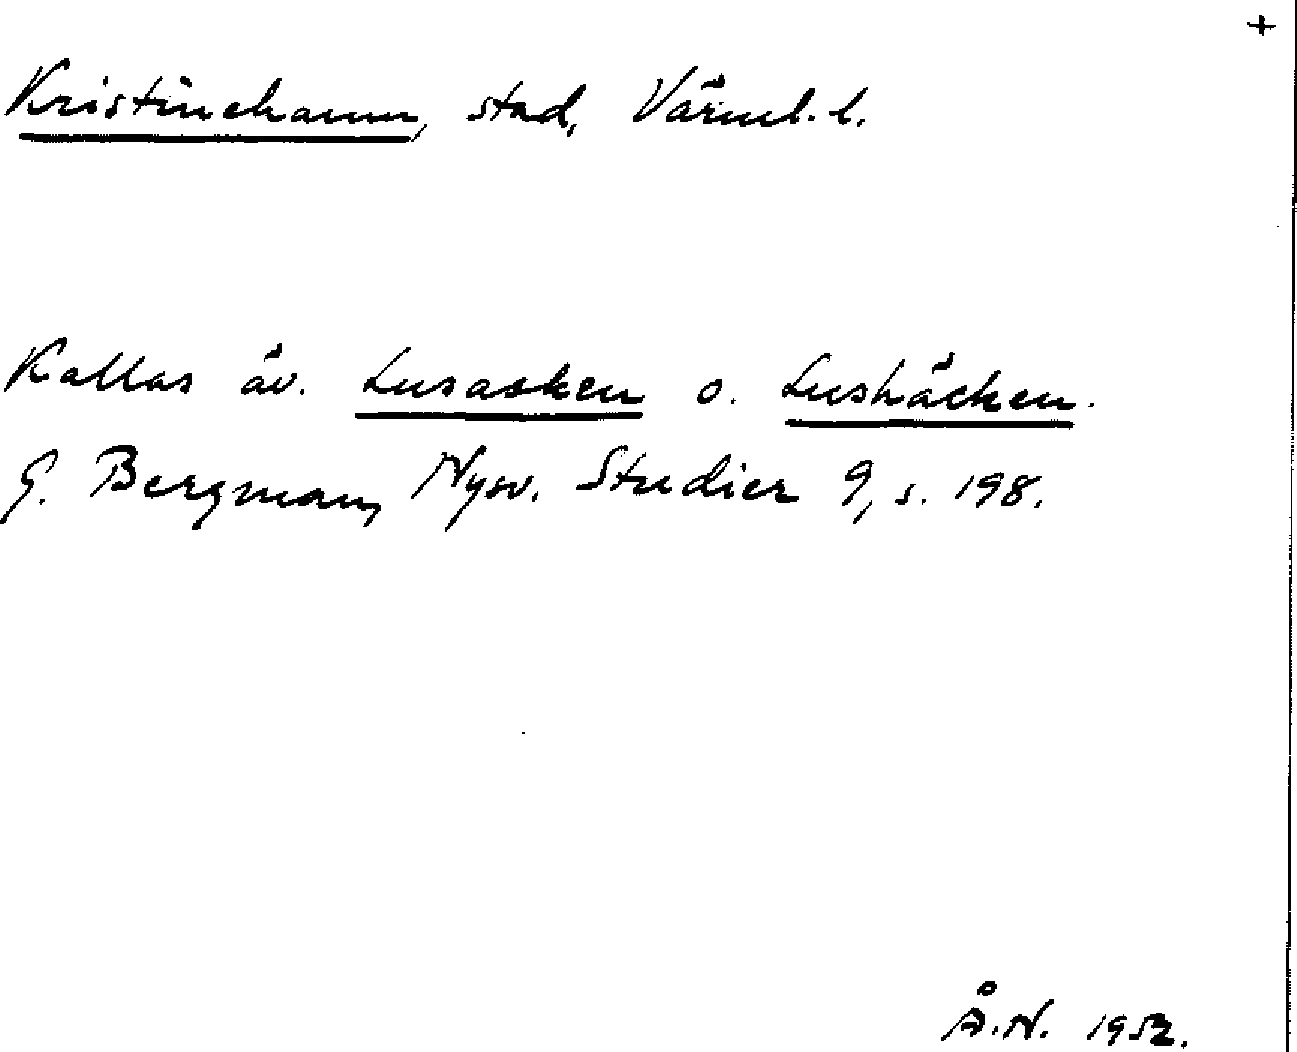 +
Kristinehamn, stad, Värml. l.
Kallas äv. Lusasken o. Lushäcken.
G. Bergman, Nysv. Studier 9, s. 198.
Å.N. 1952.